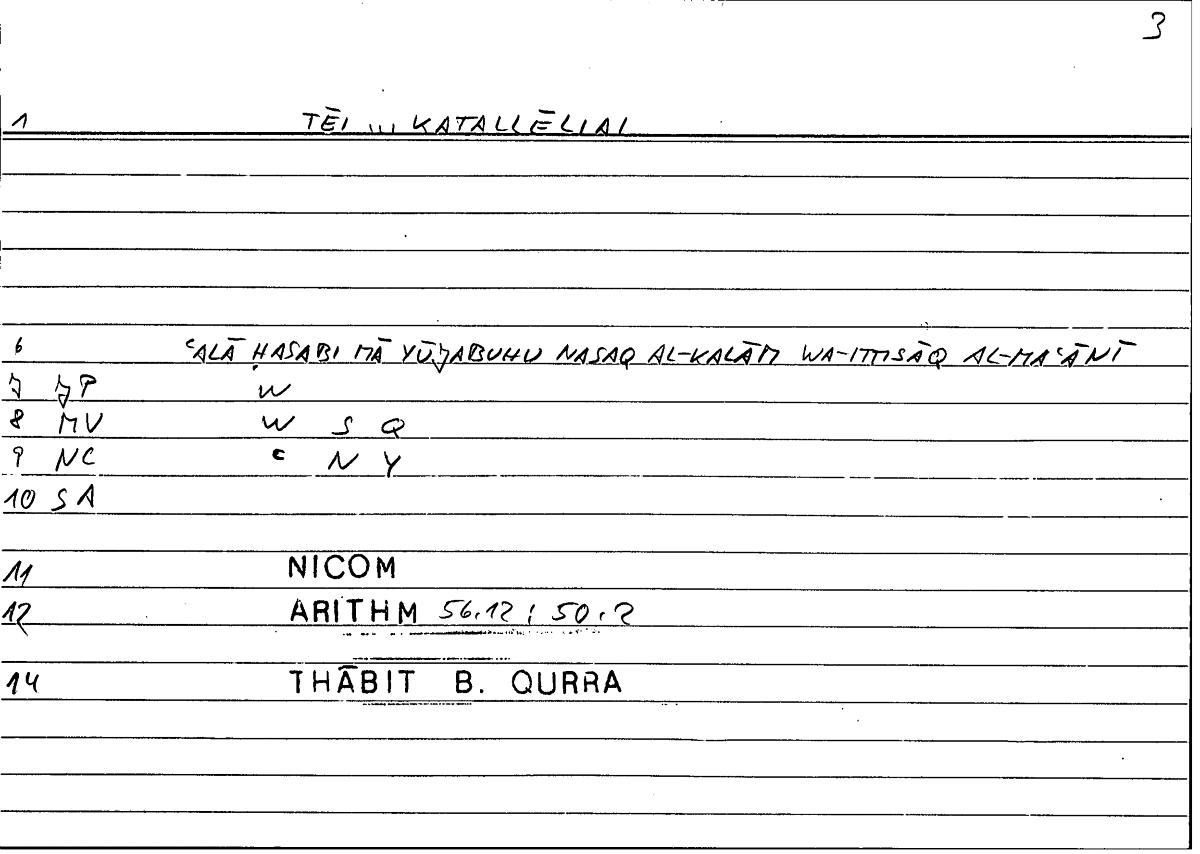 3
1 TĒI ... KATALLĒLIAI
6 ʿALĀ ḤASABI MĀ YŪJABUHU NASAQ AL-KALĀM WA-ITTISĀQ AL-MAʿĀNĪ
7 JP W
8 MV W S Q
9 NC ʿ N Y
10 SA
11 NICOM
12 ARITHM 56.12 ; 50.2
14 THĀBIT B. QURRA